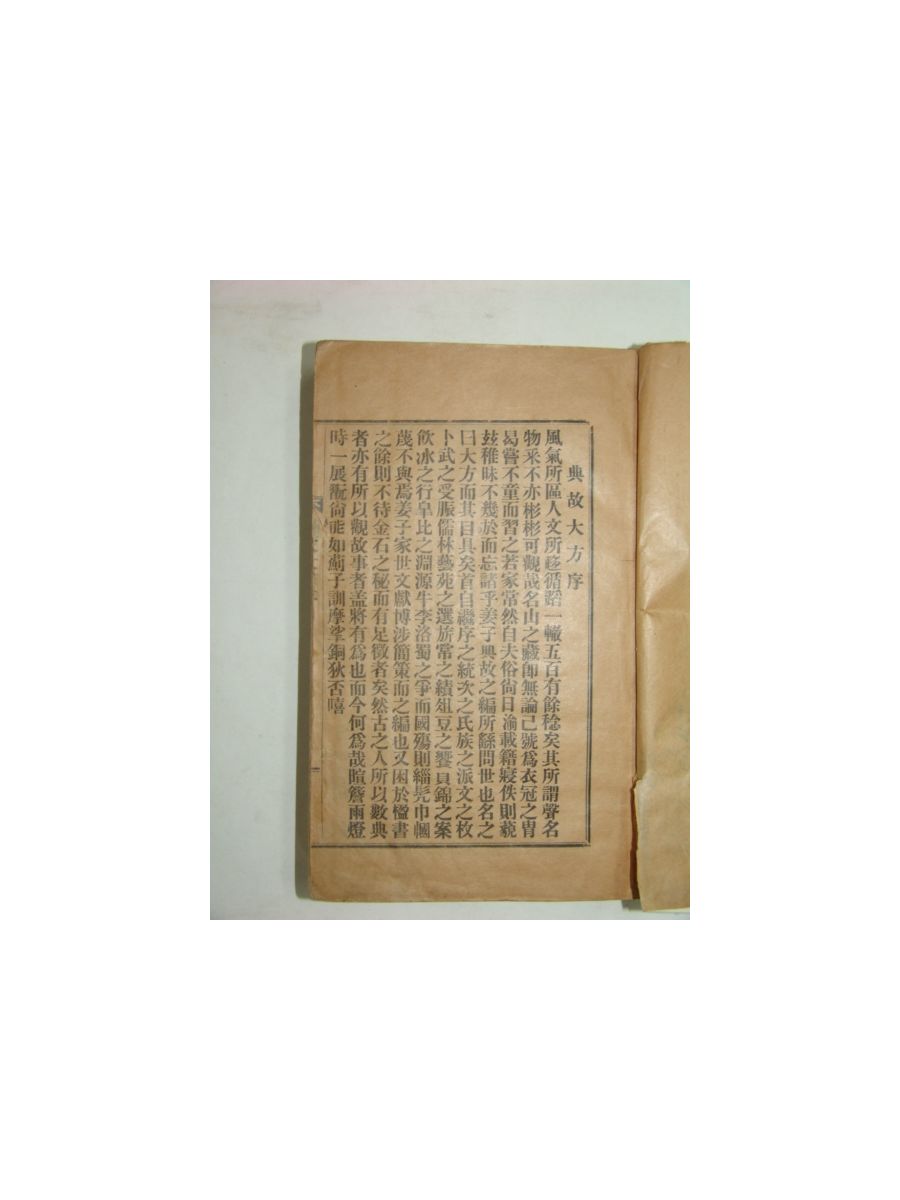 典故大方序
風氣所區人文所蹤循蹈一轍五百有餘稔矣其所謂聲名
物采不亦彬彬可觀哉名山之藏卽無論已號爲衣冠之胄
曷嘗不童而習之若家常然自夫俗尙日渝載籍寖佚則藐
玆稚昧不幾於而忘諸乎姜子典故之編所繇問世也名之
曰大方而其目具矣首自繼序之統次之氏族之派文之枚
卜武之受脤儒林藝苑之選旂常之績俎豆之饗貝錦之案
飮冰之行皐比之淵源牛李洛蜀之爭而國殤則緇髡巾幗
蔑不與焉姜子家世文獻博涉簡策而之編也又困於儘書
之餘則不待金石之秘而有足徵者矣然古之人所以數典
者亦有所以觀故事者盖將有爲也而今何爲哉暄簷雨燈
時一展翫尙能如薊子訓摩挲銅狄否嘻